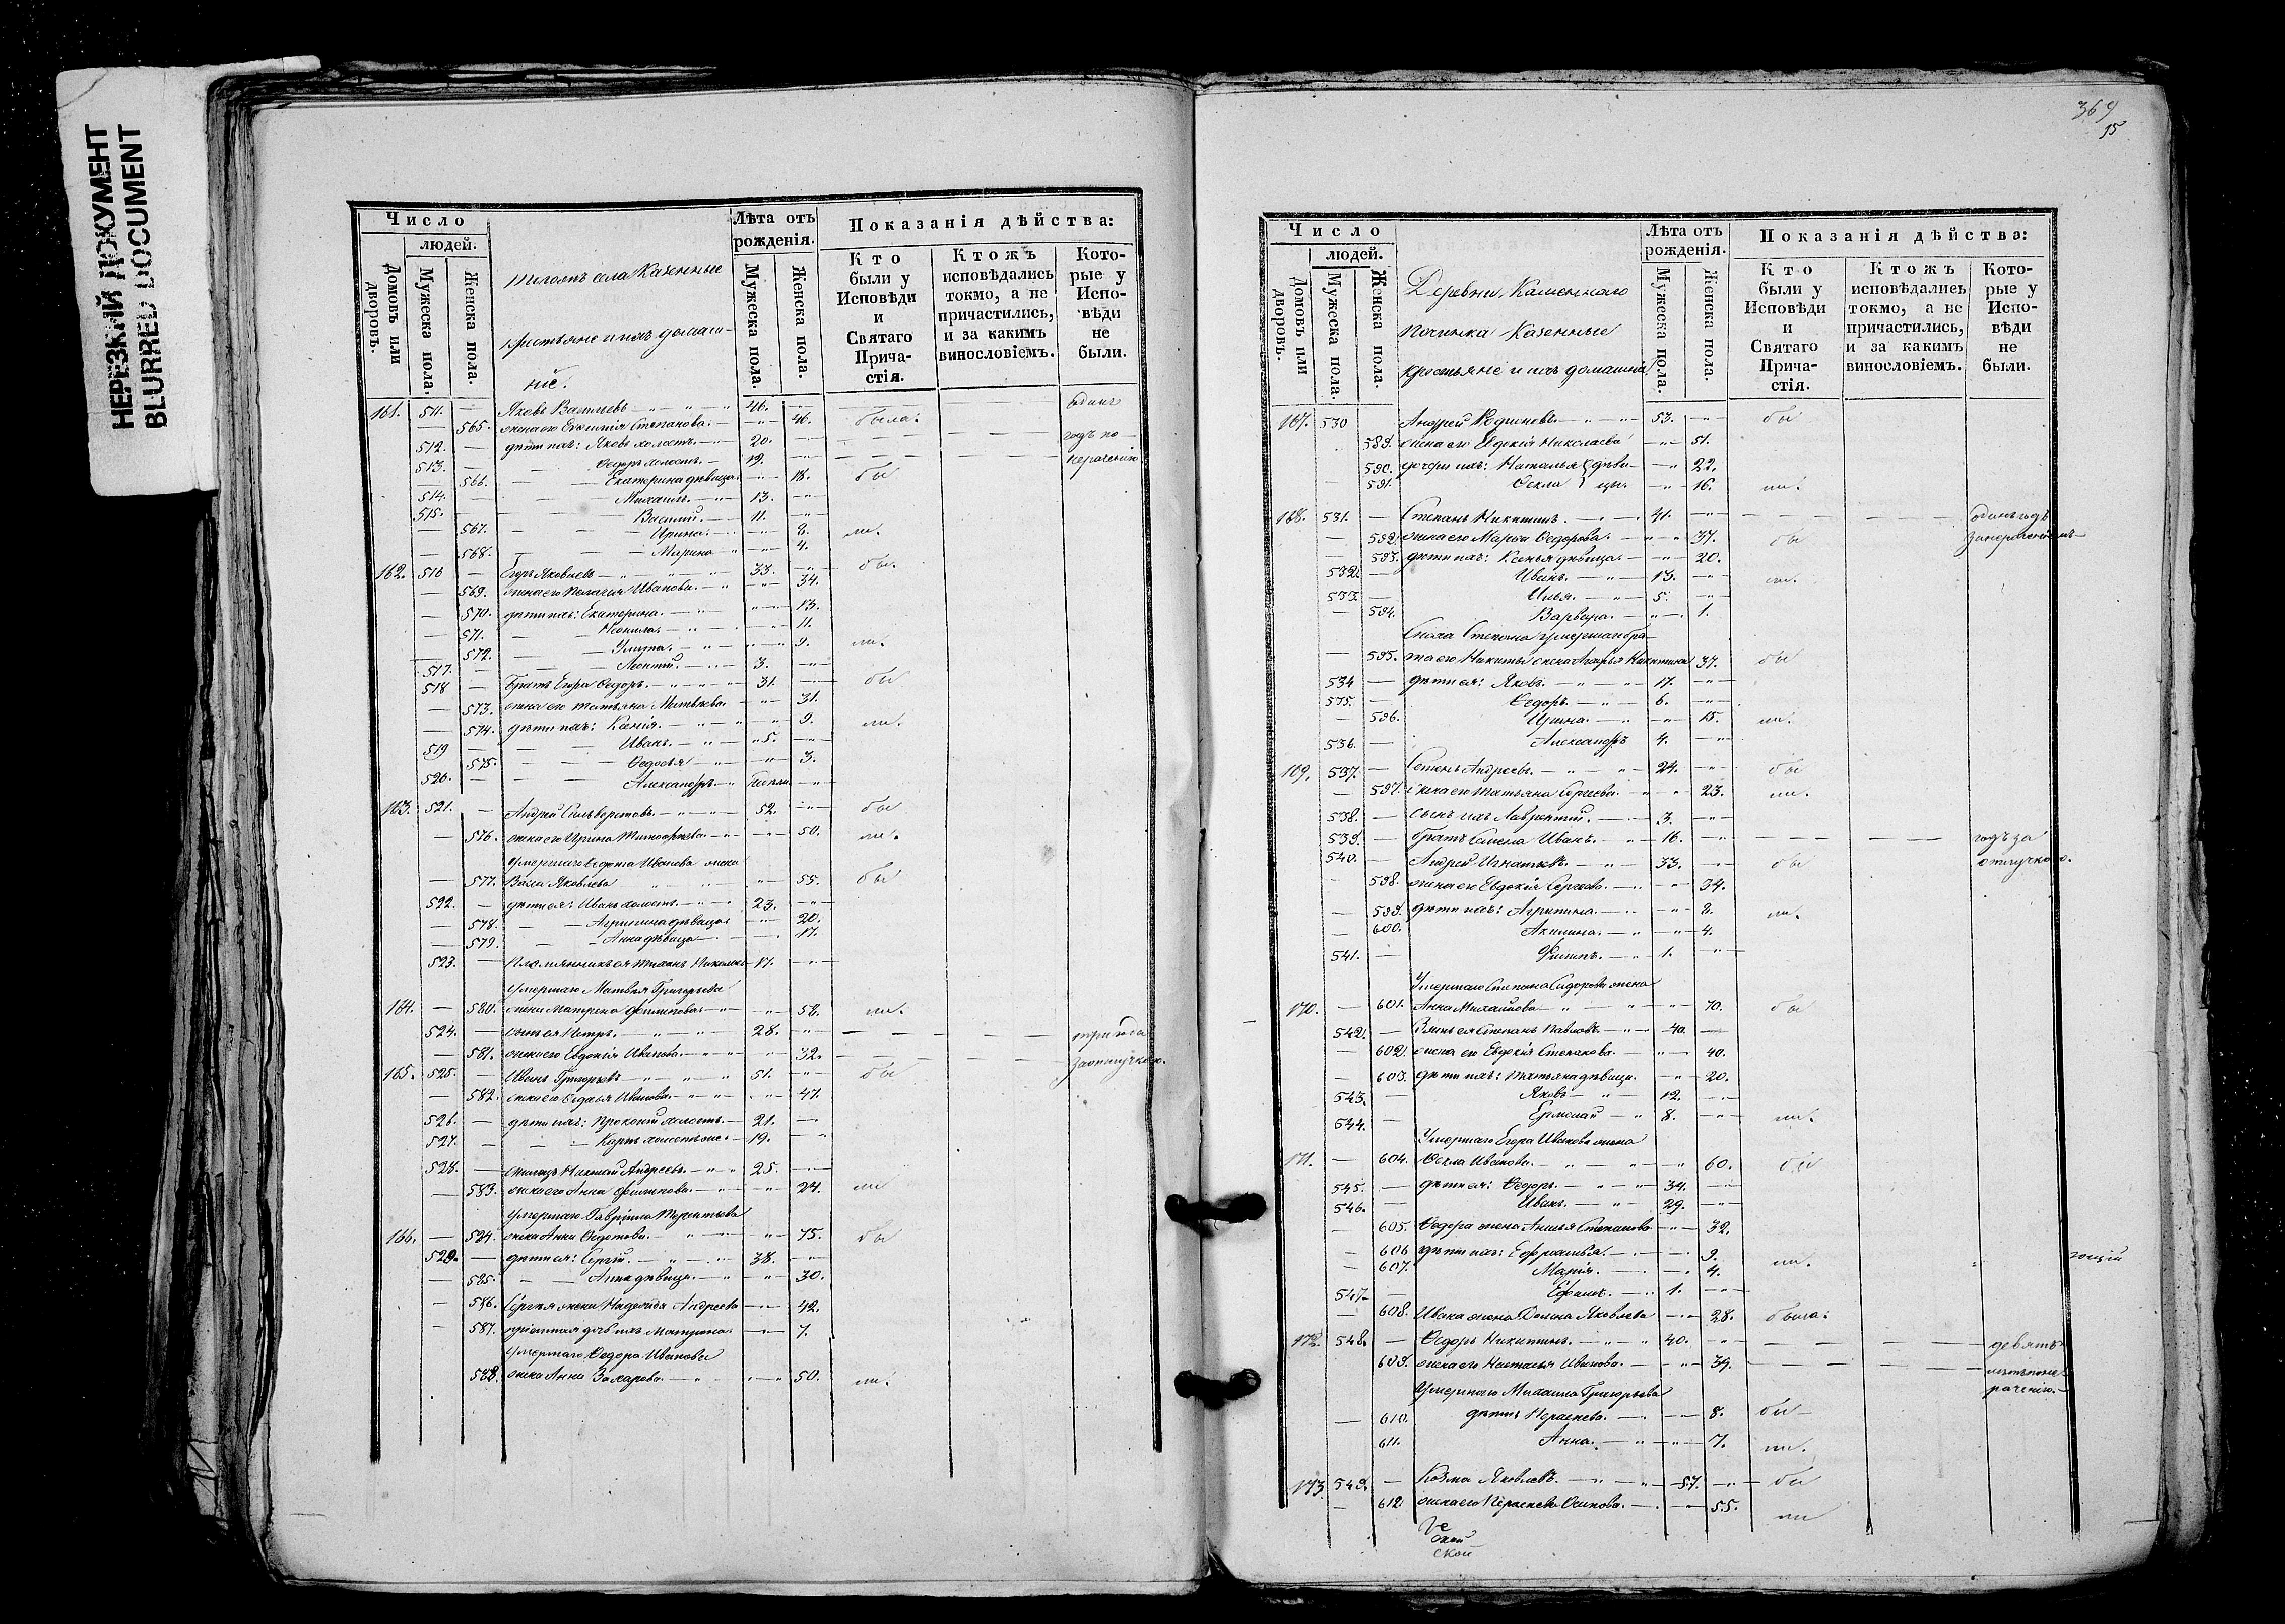 НЕРЕЗКИЙ ДОКУМЕНТ
BLURRED DOCUMENT
Число
людей.
Домовъ или дворовъ.
Мужеска пола.
Женска пола.
села Казенные
крестьяне и ихъ домаш-
ніе.
Лѣта отъ рожденія.
Мужеска пола.
Женска пола.
Показанія дѣйства:
Кто были у Исповѣди и Святаго Прича-стія.
Ктожъ исповѣдались токмо, а не причастились, и за какимъ винословіемъ.
Кото-рые у Испо-вѣди не были.
161. 511. — Яковъ Васильевъ 46. одинъ
— 565. жена его Степанова 46. была.
512. — дѣти ихъ: Яковъ холостъ 20. годъ по
513. — Ѳедоръ холостъ 19. нераченію
— 566. Екатерина дѣвица 18. бы
514. — Михаилъ 13.
515. — Василій 11.
— 567. Ирина 8. ли.
— 568. Марина 4.
162. 516 — Егоръ Яковлевъ 33. бы.
— 569. жена его Пелагія Иванова 34.
— 570. дѣти ихъ: Екатерина 13.
— 571. Неонила 11.
— 572. Улита 9. ли.
517. — Леонтій 3.
518 — Братъ Егора Ѳедоръ 31. бы
— 573. жена его Татьяна Матвѣева 31.
— 574. дѣти ихъ: Ксенія 9. ли.
519 — Иванъ 5.
— 575. Ѳедосья 3.
520. — Александръ
163. 521. — Андрей Сильверстовъ 52. бы
— 576. жена его Ирина Тимофеева 50. ли.
Умершаго Ѳедота Иванова жена
— 577. Васса Яковлева 55. бы
522. — дѣти ея: Иванъ холостъ 23.
— 578. Агрипина дѣвица 20.
— 579. Анна дѣвица 17.
523. — Племянникъ ея 17.
Умершаго Матвѣя Григорьева
164. — 580. жена Матрена Филипова 58. ли.
524. — сынъ ея Петръ 28. три года
— 581. жена его Евдокія Иванова 32. за отлучкою.
165. 525. — Иванъ Григорьевъ 51. бы
— 582. жена его Иванова 47.
526. — дѣти ихъ: Прокопій холостъ 21.
527. — Карпъ 19.
528. — Андреевъ 25.
— 583. жена его Анна Филипова 24. ли
Умершаго Гавріила Терентьева
166. — 584. жена Анна Ѳедотова 75. бы
529. — дѣти ея: Сергѣй 38.
— 585. Анна дѣвица 30.
— 586. Сергѣя жена Надежда Андреева 42.
— 587. Матрона 7.
Умершаго Ѳедора Иванова
588. жена Анна Захарова 50. ли.
369
15
Число
людей.
Домовъ или дворовъ.
Мужеска пола.
Женска пола.
Деревни Каменнаго
починка Казенные
крестьяне и ихъ домашніе
Лѣта отъ рожденія.
Мужеска пола.
Женска пола.
Показанія дѣйства:
Кто были у Исповѣди и Святаго Прича-стія.
Ктожъ исповѣдались токмо, а не причастились, и за какимъ винословіемъ.
Кото-рые у Испо-вѣди не были.
167. 530 Андрей Родіоновъ 53. бы
589. жена его Евдокія Николаева 51.
590. дочери ихъ: Наталья дѣви- 22.
— 591. Ѳекла цы. 16. ли.
168. 531. — Степанъ Никитинъ 41. одинъ годъ
— 592. жена его Марѳа Ѳедорова 37. бы за нераченіемъ
— 593. дѣти ихъ: Ксенья дѣвица 20.
532. — Иванъ 13. ли.
533. — Илья 5.
— 594. Варвара 1.
Сноха Степана умершаго бра-
— 595. та его Никиты жена Никитина 37. бы
534 — дѣти ея: Яковъ 17.
535. — Ѳедоръ 6.
— 596. Ирина 15. ли.
536. — Александръ 4.
169. 537. — Семенъ Андреевъ 24. бы
— 597. жена его Татьяна Сергеева 23. ли.
538. — сынъ ихъ Лаврентій 3.
539. — братъ Семена Иванъ 16. годъ за
540. — Андрей Игнатьевъ 33. бы отлучкою.
— 598. жена его Евдокія Сергеева 34.
— 599. дѣти ихъ: Агрипина 8. ли.
— 600. Акилина 4.
541. — Филипъ 1.
Умершаго Степана Сидорова жена
170. — 601. Анна Михайлова 70. бы
542. — Зять ея Степанъ Павловъ 40.
— 602. жена его Евдокія Степанова 40.
— 603. дѣти ихъ: Татьяна дѣвица 20.
543. — Яковъ 12.
544. — Ермолай 8. ли.
Умершаго Егора Иванова жена
171. — 604. Ѳекла Иванова 60. бы
545. — дѣти ея: Ѳедоръ 34.
546. — Иванъ 29.
— 605. Ѳедора жена Степанова 32.
— 606 дѣти ихъ: Ефросинья 9.
— 607. Марія 4. ли.
547. — Ефимъ 1.
— 608. Ивана жена Яковлева 28. была.
172. 548. — Ѳедоръ Никитинъ 40. девять
609. жена его Наталья Иванова 39. лѣтъ по не-
Умершаго Михаила Григорьева раченію.
— 610. дѣти Параскева 8. бы
611. Анна 7. ли.
173 549. — Козма Яковлевъ 57. бы
— 612. жена его Параскева Осипова 55. ли
ской